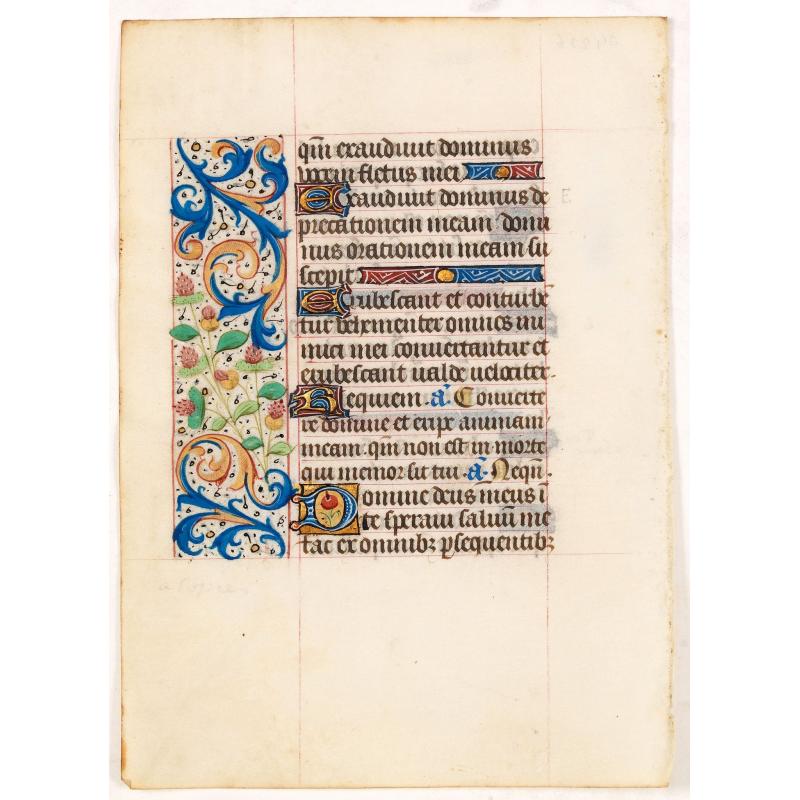 qm̄ exaudiuit dominus
vocem fletus mei
Exaudiuit dominus de
precationem meam domi
nus orationem meam su
scepit
Erubescant et conturbe
tur vehementer omnes ini
mici mei conuertantur et
erubescant ualde uelociter.
Requiem .a. Conuerte
re domine et eripe animam
meam. qm̄ non est in morte
qui memor sit tui .a. Neqū.
Domine deus meus i
te speraui saluū me
fac ex omnibꝫ ꝑsequentibꝫ
E